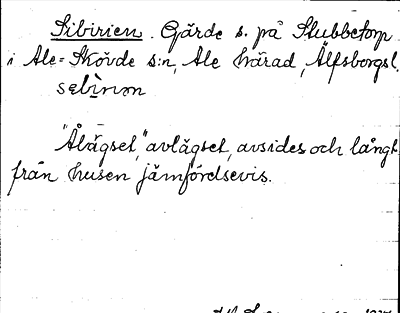 Sibirien. Gärde s. på Stubbetorp
i Ale-Skövde s:n, Ale härad, Älfsborgs l.
sebìrɩən
"Ålägset," avlägset, avsides och långt
från husen jämförelsevis.